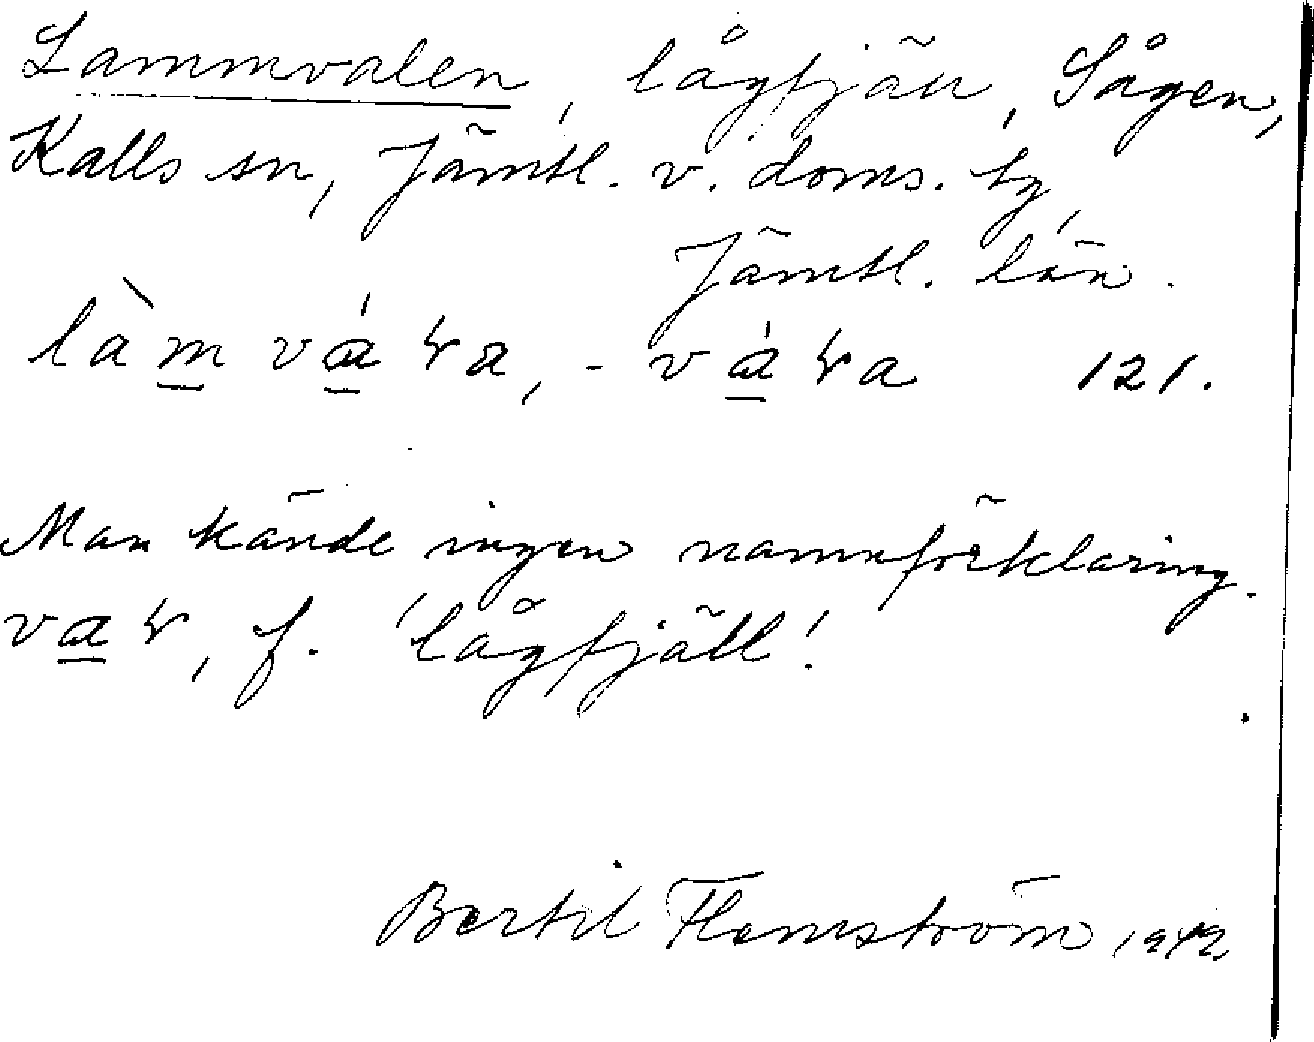 Lammvalen, lågfjäll, Sågen,
Kalls sn, Jämtl. v. doms. by,
Jämtl. län.
121.
Man kände ingen namnförklaring.
f. 'lågfjäll'.
Bertil Flemström 1942